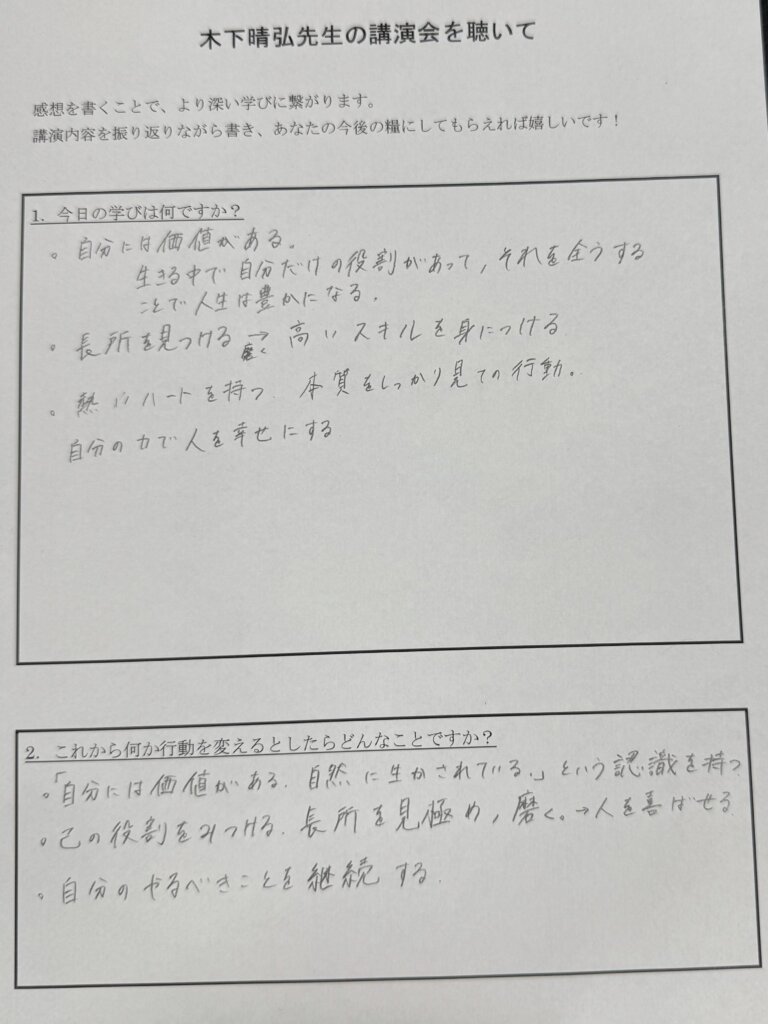 木下晴弘先生の講演会を聴いて
感想を書くことで、より深い学びに繋がります。
講演内容を振り返りながら書き、あなたの今後の糧にしてもらえれば嬉しいです！
1. 今日の学びは何ですか？
。自分には価値がある.
生きる中で自分だけの役割があって, それを全うする
ことで人生は豊かになる.
。長所を見つける → 高いスキルを身につける
磨く
。熱いハートを持つ. 本質をしっかり見ての行動。
自分の力で人を幸せにする
2. これから何か行動を変えるとしたらどんなことですか？
。「自分には価値がある. 自然に生かされている.」という認識を持つ
。己の役割をみつける. 長所を見極め, 磨く。→人を喜ばせる
。自分のやるべきことを継続する.